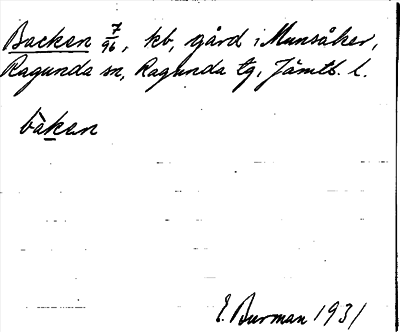 Backen 7/96, kb, gård i Munsåker,
Ragunda sn, Ragunda tg, Jämtl. l.
bàken
E. Burman 1931